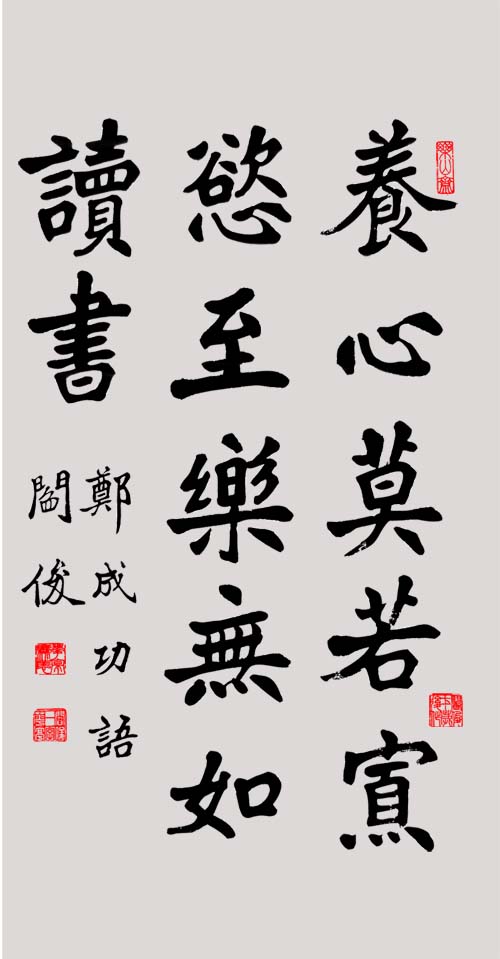 養心莫若寡
慾至樂無如
讀書
鄭成功語
閻俊